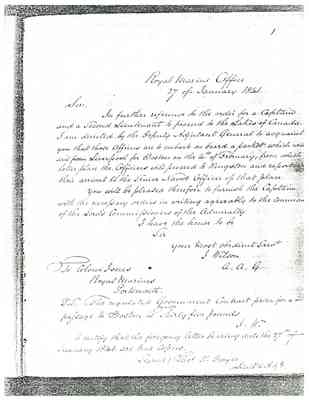 1
Royal Marines Office
27 of January 1841
Sir,
In further reference to the order for a Captain
and a Second Lieutenant to proceed to the Lakes of Canada
I am directed by the Deputy Adjutant General to acquaint
you that those Officers are to embark on board a packet which will
sail from Liverpool for Boston on the 4th of February, from which
latter place the Officers will proceed to Kingston and report
their arrival to the Senior Naval Officer of that place.
You will be pleased therefore to furnish the Captain
with the necessary orders in writing agreeably to the command
of the Lords Commissioners of the Admiralty
I have the honor to be
Sir
your most obedient Servt
J Wilson
A. A. G.
To Colonel Jones
Royal Marines
Portsmouth
P.S. The regulated Government Contract price for a
passage to Boston is Thirty five pounds
J. W.
I certify that the foregoing letter bearing date the 27th of
January 1841 is a true Copy